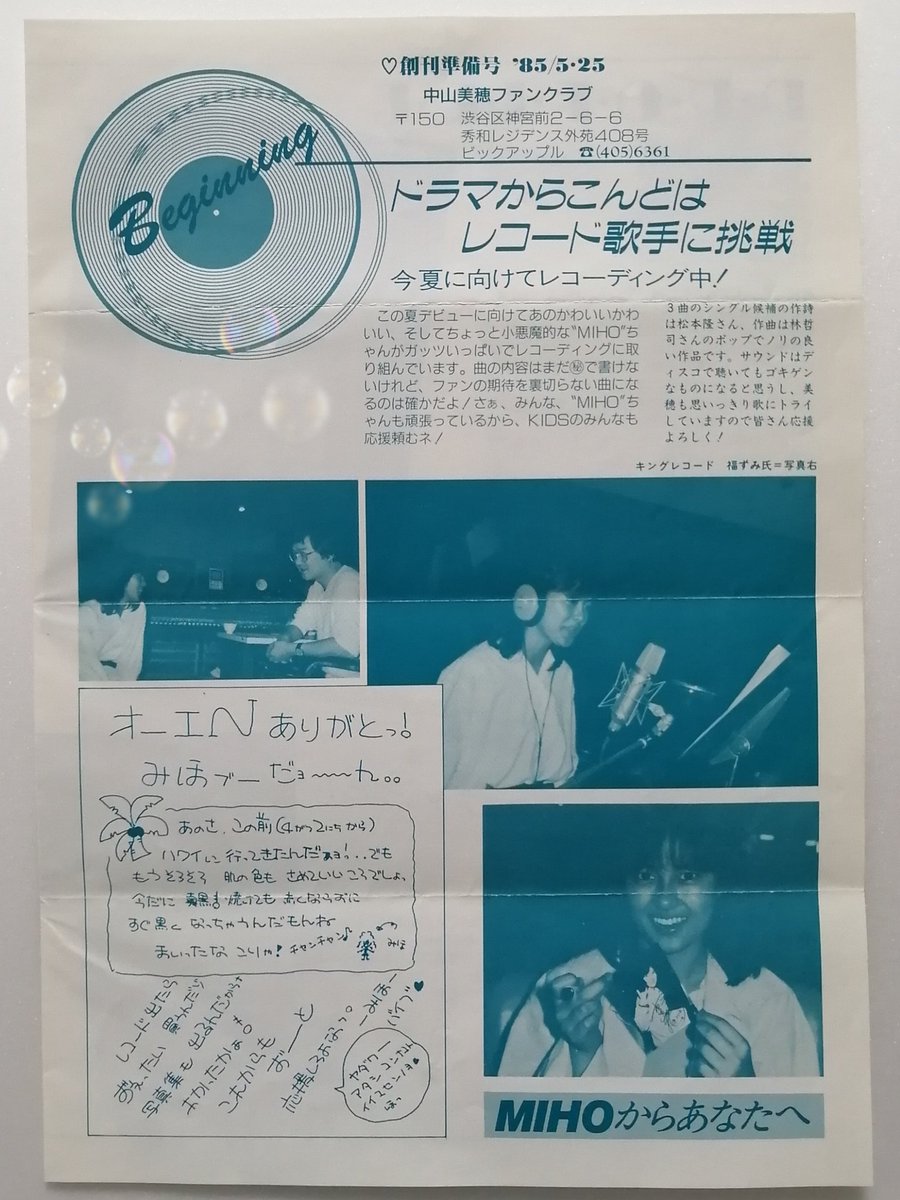 ♡創刊準備号 '85/5・25
中山美穂ファンクラブ
〒150 渋谷区神宮前2-6-6
秀和レジデンス外苑408号
ビックアップル ☎(405)6361
Beginning
ドラマからこんどは
レコード歌手に挑戦
今夏に向けてレコーディング中!
この夏デビューに向けてあのかわいいかわ
いい、そしてちょっと小悪魔的な"MIHO"ち
ゃんがガッツいっぱいでレコーディングに取
り組んでいます。曲の内容はまだ㊙で書けな
いけれど、ファンの期待を裏切らない曲にな
るのは確かだよ!さぁ、みんな、"MIHO"ち
ゃんも頑張っているから、KIDSのみんなも
応援頼むネ!
3曲のシングル候補の作詩
は松本隆さん、作曲は林哲
司さんのポップでノリの良
い作品です。サウンドはデ
ィスコで聴いてもゴキゲン
なものになると思うし、美
穂も思いっきり歌にトライ
していますので皆さん応援
よろしく!
キングレコード 福ずみ氏=写真右
オーエNありがとっ!
みほブーだョ〜〜ん。。
あのさ、この前(4がつ2にちから)
ハワイに行ってきたんだョ!..でも
もうそろそろ 肌の色も さめていいころでしょ、
今だに 焼けても 赤くならずに
すぐ黒く なっちゃうんだもんね
まいったな こりゃ! チャンチャン♪
みほ
レコード出たら
ぜぇったい 買うんだぞ
写真集も 出るんだからさ
わかったかぁ。
これからも
お――と
応援しろよなっ。
―みほ―
バイブ♥
ヤダワー
アタシ コンナント
イイマセンノヨ
ほっ
MIHOからあなたへ